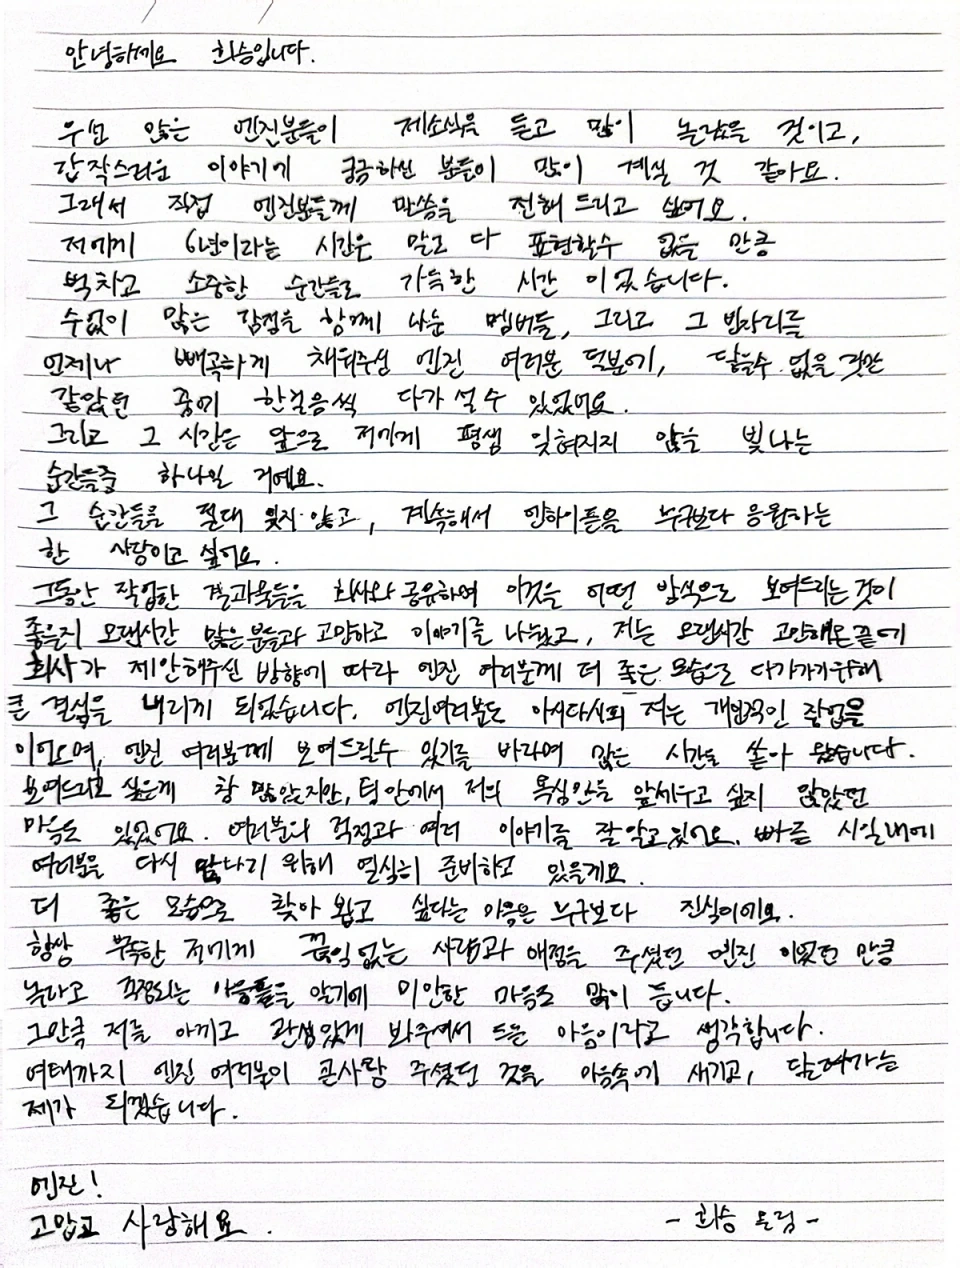 안녕하세요 희승입니다.
우선 많은 엔진분들이 제소식을 듣고 많이 놀랐을 것이고,
갑작스러운 이야기에 궁금하신 분들이 많이 계실 것 같아요.
그래서 직접 엔진분들께 말씀을 전해 드리고 싶어요.
저에게 6년이라는 시간은 말로 다 표현할수 없을 만큼
벅차고 소중한 순간들로 가득한 시간 이었습니다.
수없이 많은 감정을 함께 나눈 멤버들, 그리고 그 빈자리를
언제나 빼곡하게 채워주신 엔진 여러분 덕분에, 닿을수 없을 것만
같았던 꿈에 한걸음씩 다가 설 수 있었어요.
그리고 그 시간은 앞으로 저에게 평생 잊혀지지 않을 빛나는
순간들중 하나일 거예요.
그 순간들을 절대 잊지 않고, 계속해서 엔하이픈을 누구보다 응원하는
한 사람이고 싶어요.
그동안 작업한 결과물들을 회사와 공유하며 이것을 어떤 방식으로 보여드리는 것이
좋을지 오랜시간 많은 분들과 고민하고 이야기를 나눴고, 저는 오랜시간 고민해온 끝에
회사가 제안해주신 방향에 따라 엔진 여러분께 더 좋은 모습으로 다가가기위해
큰 결심을 내리게 되었습니다. 엔진여러분도 아시다시피 저는 개인적인 작업을
이어오며, 엔진 여러분께 보여드릴수 있기를 바라며 많은 시간을 쏟아 왔습니다.
보여드리고 싶은게 참 많았지만, 팀 안에서 저의 욕심만을 앞세우고 싶지 않았던
마음도 있었어요. 여러분의 걱정과 여러 이야기를 잘 알고 있어요. 빠른 시일내에
여러분을 다시 만나기 위해 열심히 준비하고 있을게요.
더 좋은 모습으로 찾아 뵙고 싶다는 마음은 누구보다 진심이에요.
항상 부족한 저에게 끊임없는 사랑과 애정을 주셨던 엔진 이었던 만큼
놀라고 걱정되는 마음들을 알기에 미안한 마음도 많이 듭니다.
그만큼 저를 아끼고 관심있게 봐주셔서 드는 마음이라고 생각합니다.
여태까지 엔진 여러분이 큰사랑 주셨던 것을 마음속에 새기고, 달려가는
제가 되겠습니다.
엔진!
고맙고 사랑해요.
- 희승 드림 -